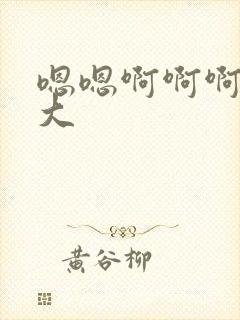 嗯嗯啊啊啊
大
黄谷柳